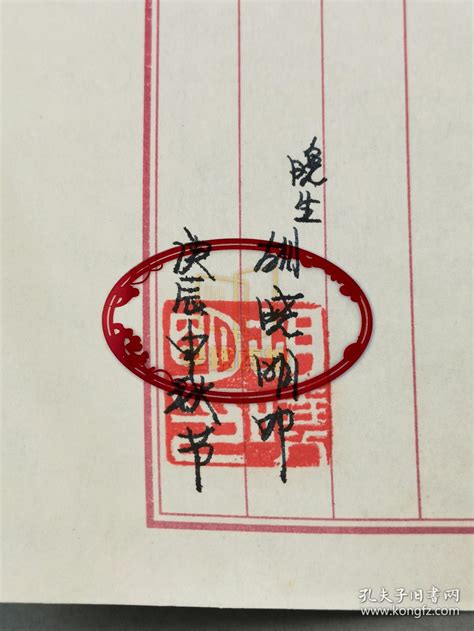 晚生
胡晓明叩
庚辰中秋节
孔夫子旧书网
www.kongfz.com